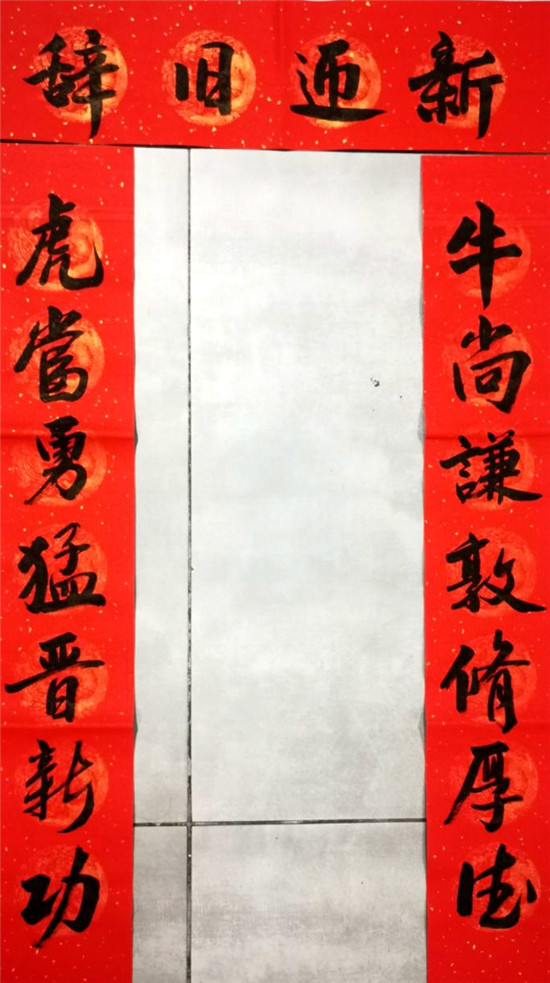 辞旧迎新
牛尚謙敦修厚德
虎當勇猛晋新功